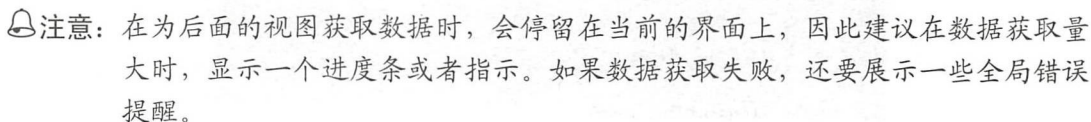 注意：在为后面的视图获取数据时，会停留在当前的界面上，因此建议在数据获取量
大时，显示一个进度条或者指示。如果数据获取失败，还要展示一些全局错误
提醒。